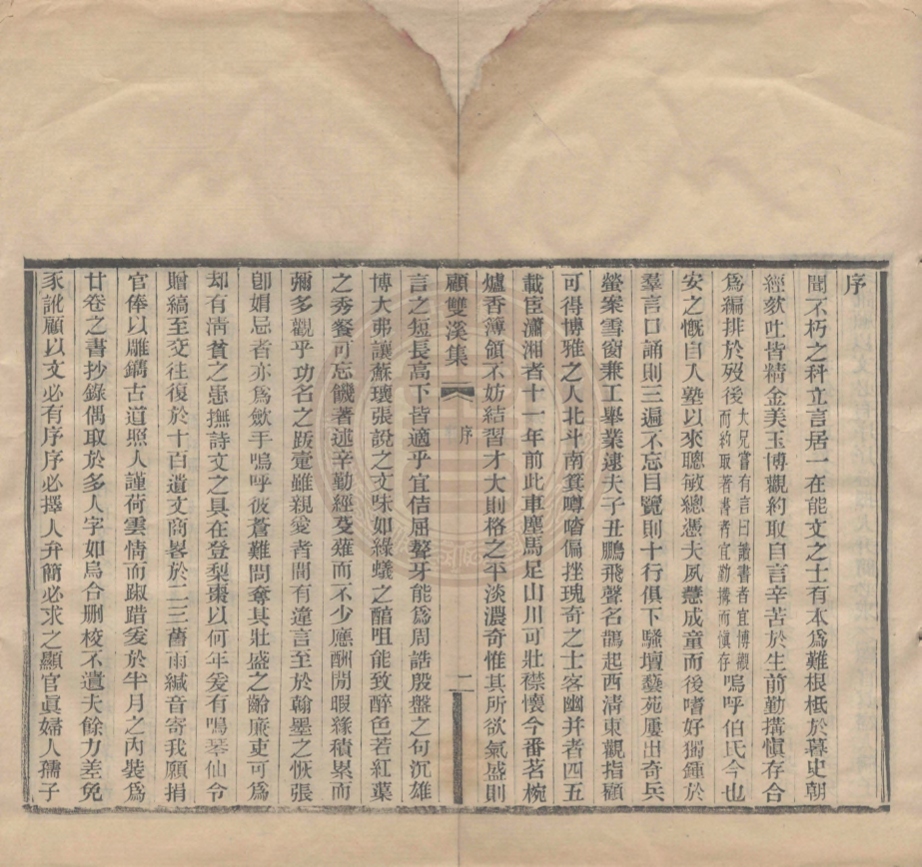 序
聞不朽之科立言居一在能文之士有本爲難根柢於暮史朝
經欬吐皆精金美玉博觀約取自言辛苦於生前勤搆愼存合
爲編排於歿後大兄嘗有言曰讀書者宜博觀而約取著書者宜勤搆而愼存嗚呼伯氏今也
安之慨自入塾以來聰敏總憑夫夙慧成童而後嗜好獨鍾於
羣言口誦則三遍不忘目覽則十行俱下騷壇藝苑屢出奇兵
螢案雪窗兼工擧業逮夫子丑鵬飛聲名鵲起西淸東觀指顧
可得博雅之人北斗南箕噂喈偏挫瑰奇之士客幽幷者四五
載宦瀟湘者十一年前此車塵馬足山川可壯襟懷今番茗椀
爐香簿領不妨結習才大則格之平淡濃奇惟其所欲氣盛則
顧雙溪集
序
二
言之短長高下皆適乎宜佶屈聱牙能爲周誥殷盤之句沉雄
博大弗讓蘇瓌張說之文味如綠蟻之醅咀能致醉色若紅蕖
之秀餐可忘饑著述辛勤經芟薙而不少應酬閒暇緣積累而
彌多觀乎功名之跋疐雖親愛者間有違言至於翰墨之恢張
卽娼忌者亦爲斂手嗚呼彼蒼難問奪其壯盛之齡廉吏可爲
却有淸貧之患撫詩文之具在登梨棗以何年爰有鳴琴仙令
贈縞至交往復於十百遺文商畧於二三舊雨緘音寄我願捐
官俸以雕鐫古道照人謹荷雲情而踧踖爰於半月之內裝爲
廿卷之書抄錄偶取於多人字如烏合删校不遺夫餘力差免
豕訛顧以文必有序序必擇人弁簡必求之顯官眞婦人孺子